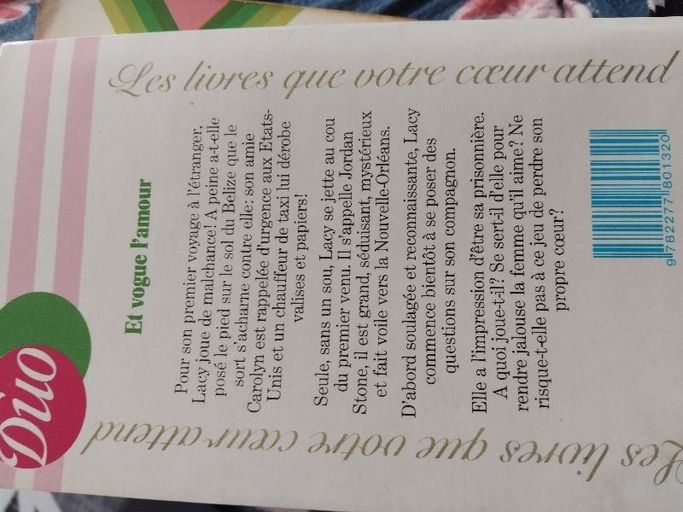 Duo
Les livres que votre cœur attend
Et vogue l'amour
Pour son premier voyage à l'étranger,
Lacy joue de malchance! A peine a-t-elle
posé le pied sur le sol du Belize que le
sort s'acharne contre elle: son amie
Carolyn est rappelée d'urgence aux Etats-
Unis et un chauffeur de taxi lui dérobe
valises et papiers!
Seule, sans un sou, Lacy se jette au cou
du premier venu. Il s'appelle Jordan
Stone, il est grand, séduisant, mystérieux
et fait voile vers la Nouvelle-Orléans.
D'abord soulagée et reconnaissante, Lacy
commence bientôt à se poser des
questions sur son compagnon.
Elle a l'impression d'être sa prisonnière.
A quoi joue-t-il? Se sert-il d'elle pour
rendre jalouse la femme qu'il aime? Ne
risque-t-elle pas à ce jeu de perdre son
propre cœur?
9 782277 801320
Les livres que votre cœur attend